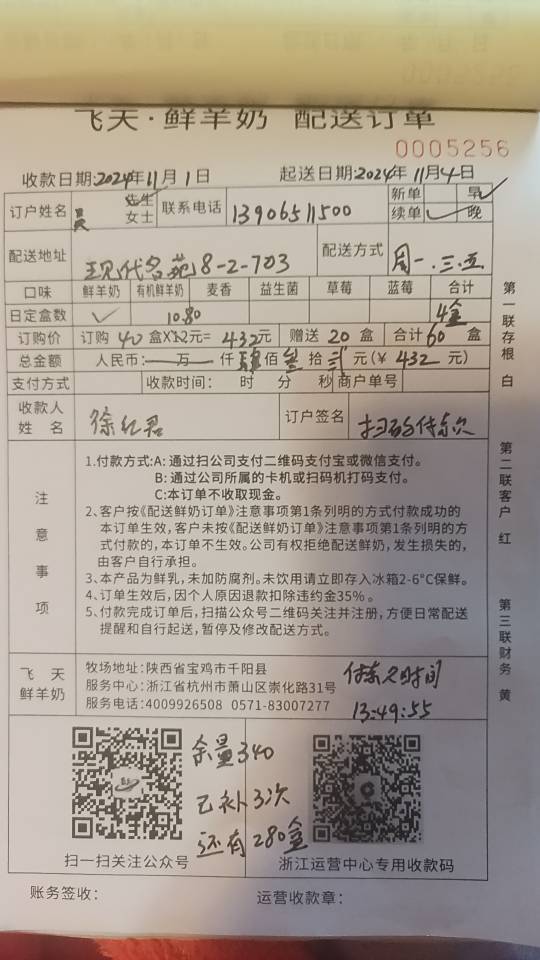 飞天·鲜羊奶 配送订单
0005256
收款日期:2024年11月1日 起送日期:2024年11月4日
订户姓名 吴 先生 女士 联系电话 13906511500 新单 早✓
续单✓ 晚
配送地址 现代名苑8-2-703 配送方式 周一.三.五
口味 鲜羊奶 有机鲜羊奶 麦香 益生菌 草莓 蓝莓 合计
日定盒数 ✓ 10.80 4盒
订购价 订购 40 盒X 元= 432元 赠送 20 盒 合计60 盒
总金额 人民币: 万 仟 肆佰 叁 拾 贰 元(¥ 432 元)
支付方式 收款时间: 时 分 秒 商户单号
收款人姓名 徐红君 订户签名 扫码付款
注意事项
1.付款方式:A:通过扫公司支付二维码支付宝或微信支付。
B:通过公司所属的卡机或扫码机打码支付。
C:本订单不收取现金。
2、客户按《配送鲜奶订单》注意事项第1条列明的方式付款成功的
本订单生效,客户未按《配送鲜奶订单》注意事项第1条列明的方
式付款的,本订单不生效。公司有权拒绝配送鲜奶,发生损失的,
由客户自行承担。
3、本产品为鲜乳,未加防腐剂。未饮用请立即存入冰箱2-6°C保鲜。
4、订单生效后,因个人原因退款扣除违约金35%。
5、付款完成订单后,扫描公众号二维码关注并注册,方便日常配送
提醒和自行起送,暂停及修改配送方式。
飞天鲜羊奶
牧场地址:陕西省宝鸡市千阳县
服务中心:浙江省杭州市萧山区崇化路31号
服务电话:4009926508 0571-83007277
付款时间
13:49:55
余量340
已补3次
还有280盒
扫一扫关注公众号 浙江运营中心专用收款码
账务签收: 运营收款章:
第一联存根 白
第二联客户 红
第三联财务 黄